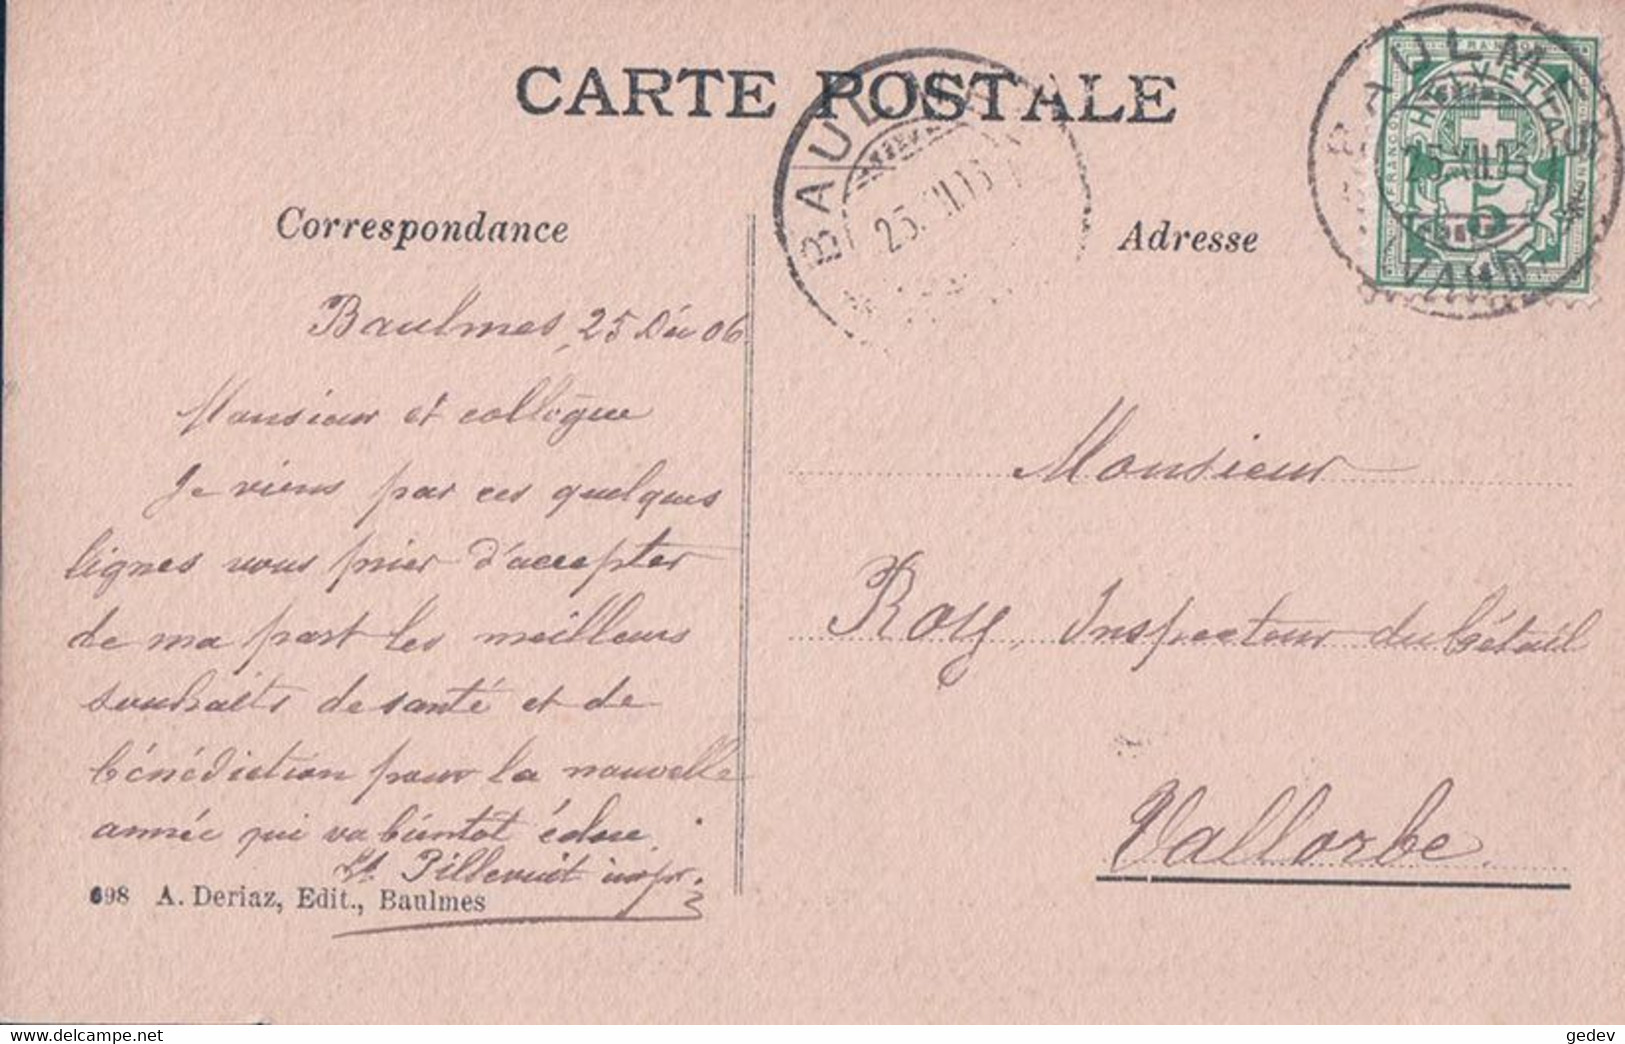 CARTE POSTALE
BAULMES
25.XII.06
BAULMES
HELVETIA
FRANCO
25.XII.06
5
VAUD
Correspondance
Adresse
Baulmes, 25 Déc 06
Monsieur et collègue
Je viens par ces quelques
lignes vous prier d'accepter
de ma part les meilleurs
souhaits de santé et de
bénédiction pour la nouvelle
année qui va bientot éclore.
Pillevuit inspr.
698 A. Deriaz, Edit., Baulmes
Monsieur
Roy, Inspecteur du bétail
Vallorbe.
gedev